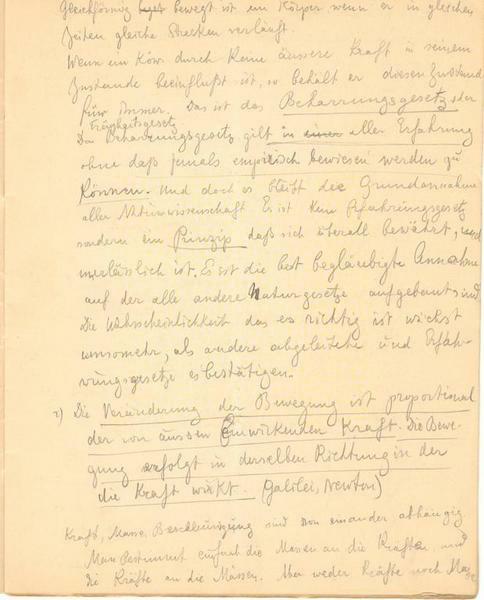 Gleichförmig bewegt ist ein Körper wenn er in gleichen
Zeiten gleiche Strecken verläuft.
Wenn ein Köw. durch keine äussere Kraft in seinem
Zustande beeinflußt ist, so behält er diesen Zustand
für immer. Das ist das Beharrungsgesetz oder
Trägheitsgesetz
Das Beharrungsgesetz gilt in einer aller Erfahrung
ohne daß jemals empirisch bewiesen werden zu
können. Und doch es bleibt die Grundannahme
aller Naturwissenschaft. Es ist kein Erfahrungsgesetz
sondern ein Prinzip daß sich überall bewährt, und
unerlässlich ist. Es ist die best begläubigte Annahme
auf der alle andere Naturgesetze aufgebaut sind.
Die Wahrscheinlichkeit das es richtig ist wächst
umsomehr, als andere abgeleitete und Erfah-
rungsgesetze es bestätigen.
2) Die Veränderung der Bewegung ist proportional
der von äussen Einwirkenden Kraft. Die Bewe-
gung erfolgt in derselben Richtung in der
die Kraft wirkt. (Galilei, Newton)
Kraft, Masse, Beschleunigung sind von einander abhängig.
Man bestimmt einfach die Massen an die Kräfte, und
die Kräfte an die Massen. Aber weder Kräfte noch